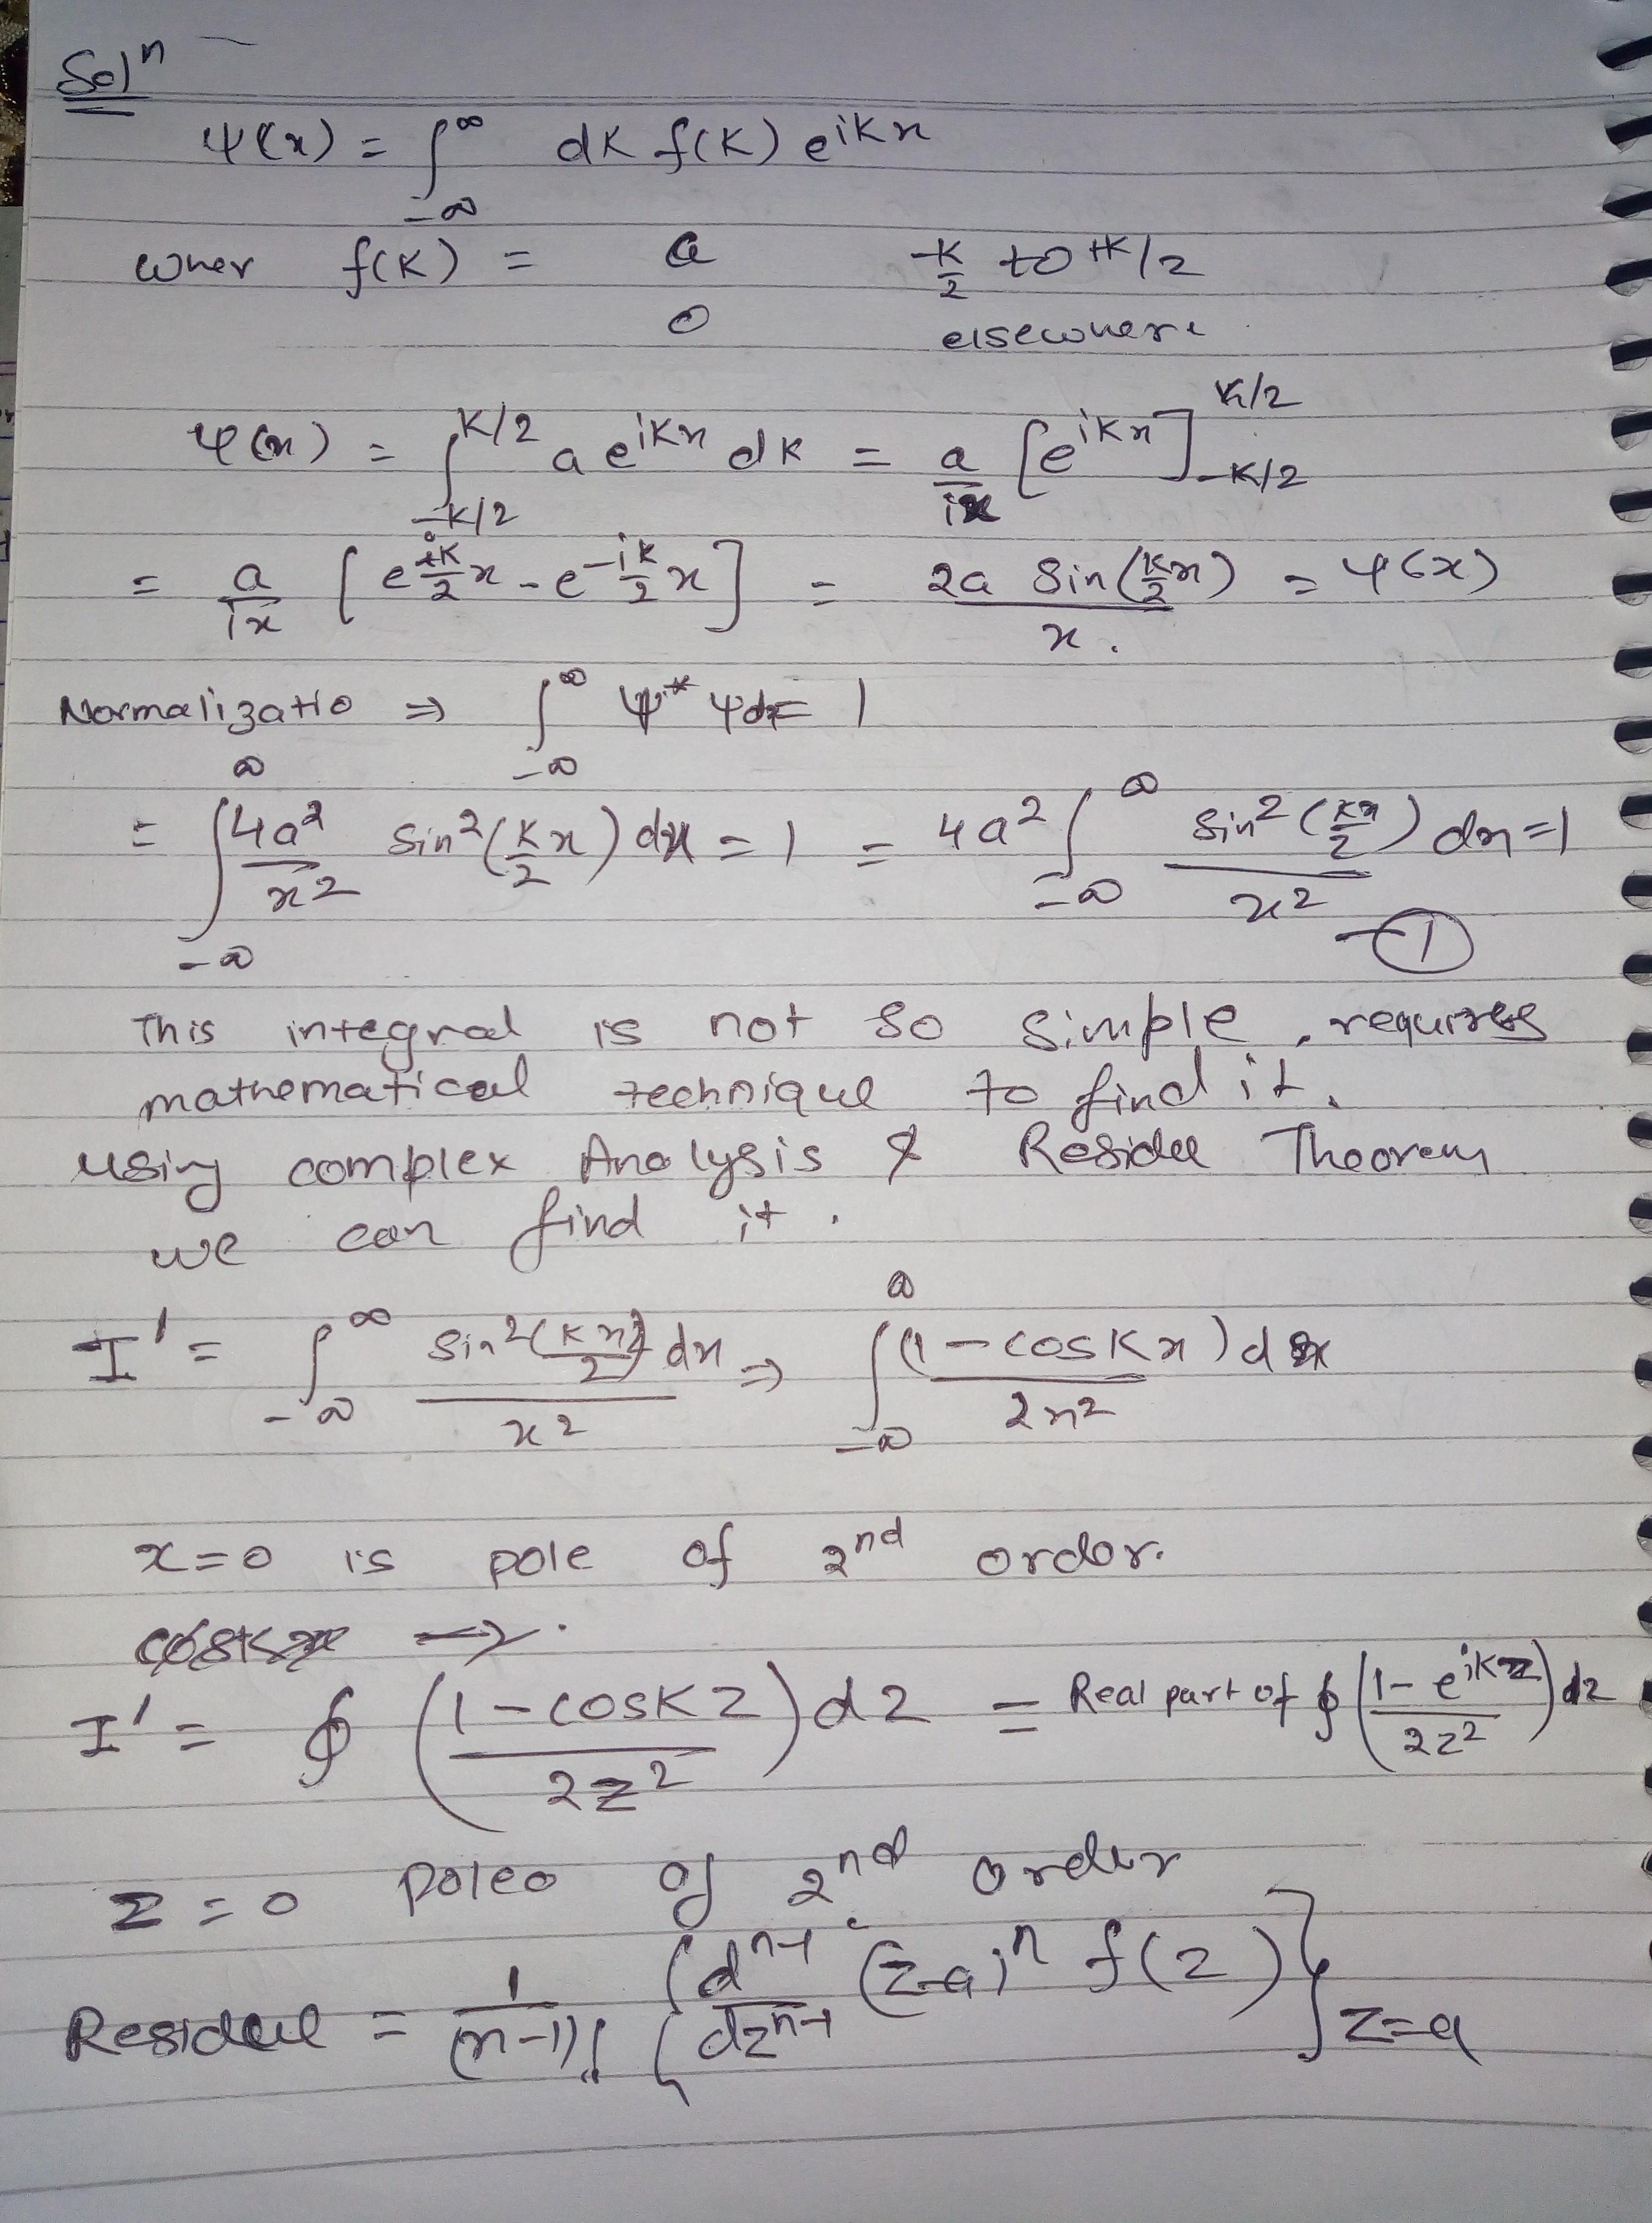 Solⁿ
ψ(x) = ∫_{-∞}^{∞} dK f(K) e^{iKx}
wher f(K) = a   -K/2 to +K/2
0   elsewhere
ψ(x) = ∫_{-K/2}^{K/2} a e^{iKx} dK = a/ix [e^{iKx}]_{-K/2}^{K/2}
= a/ix [e^{iK/2 x} - e^{-iK/2 x}] = 2a Sin(K/2 x)/x. = ψ(x)
Normalizatio ⇒ ∫_{-∞}^{∞} ψ* ψ dx = 1
= ∫_{-∞}^{∞} 4a²/x² sin²(K/2 x) dx = 1 = 4a² ∫_{-∞}^{∞} sin²(Kx/2)/x² dx = 1
—①
This integral is not so simple, requires
mathematical technique to find it.
using complex Analysis & Residue Theorem
we can find it.
I' = ∫_{-∞}^{∞} sin²(Kx/2)/x² dx ⇒ ∫_{-∞}^{∞} (1-cosKx)/2x² dx
x=0 is pole of 2nd order.
cosKx →.
I' = ∮ ((1-cosKz)/2z²) dz = Real part of ∮ ((1-e^{iKz})/2z²) dz
z=0 poleo of 2nd order
Residue = 1/(n-1)! {d^{n-1}/dz^{n-1} (z-a)^n f(z)}_{z=a}